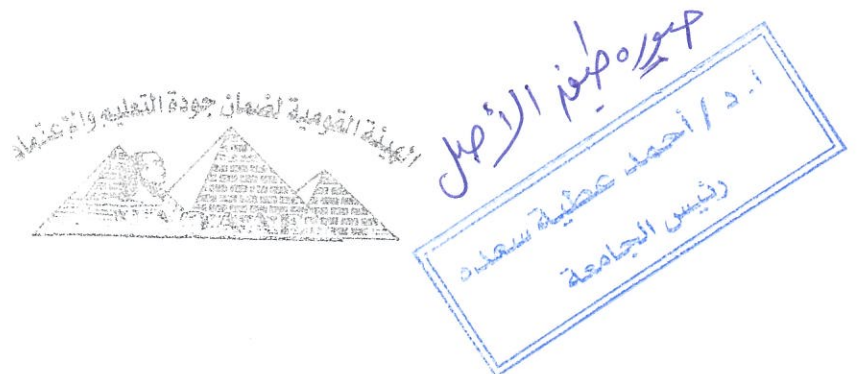 الهيئة القومية لضمان جودة التعليم والاعتماد
صوره طبق الأصل
ا.د / أحمد عطية سعده
رئيس الجامعة